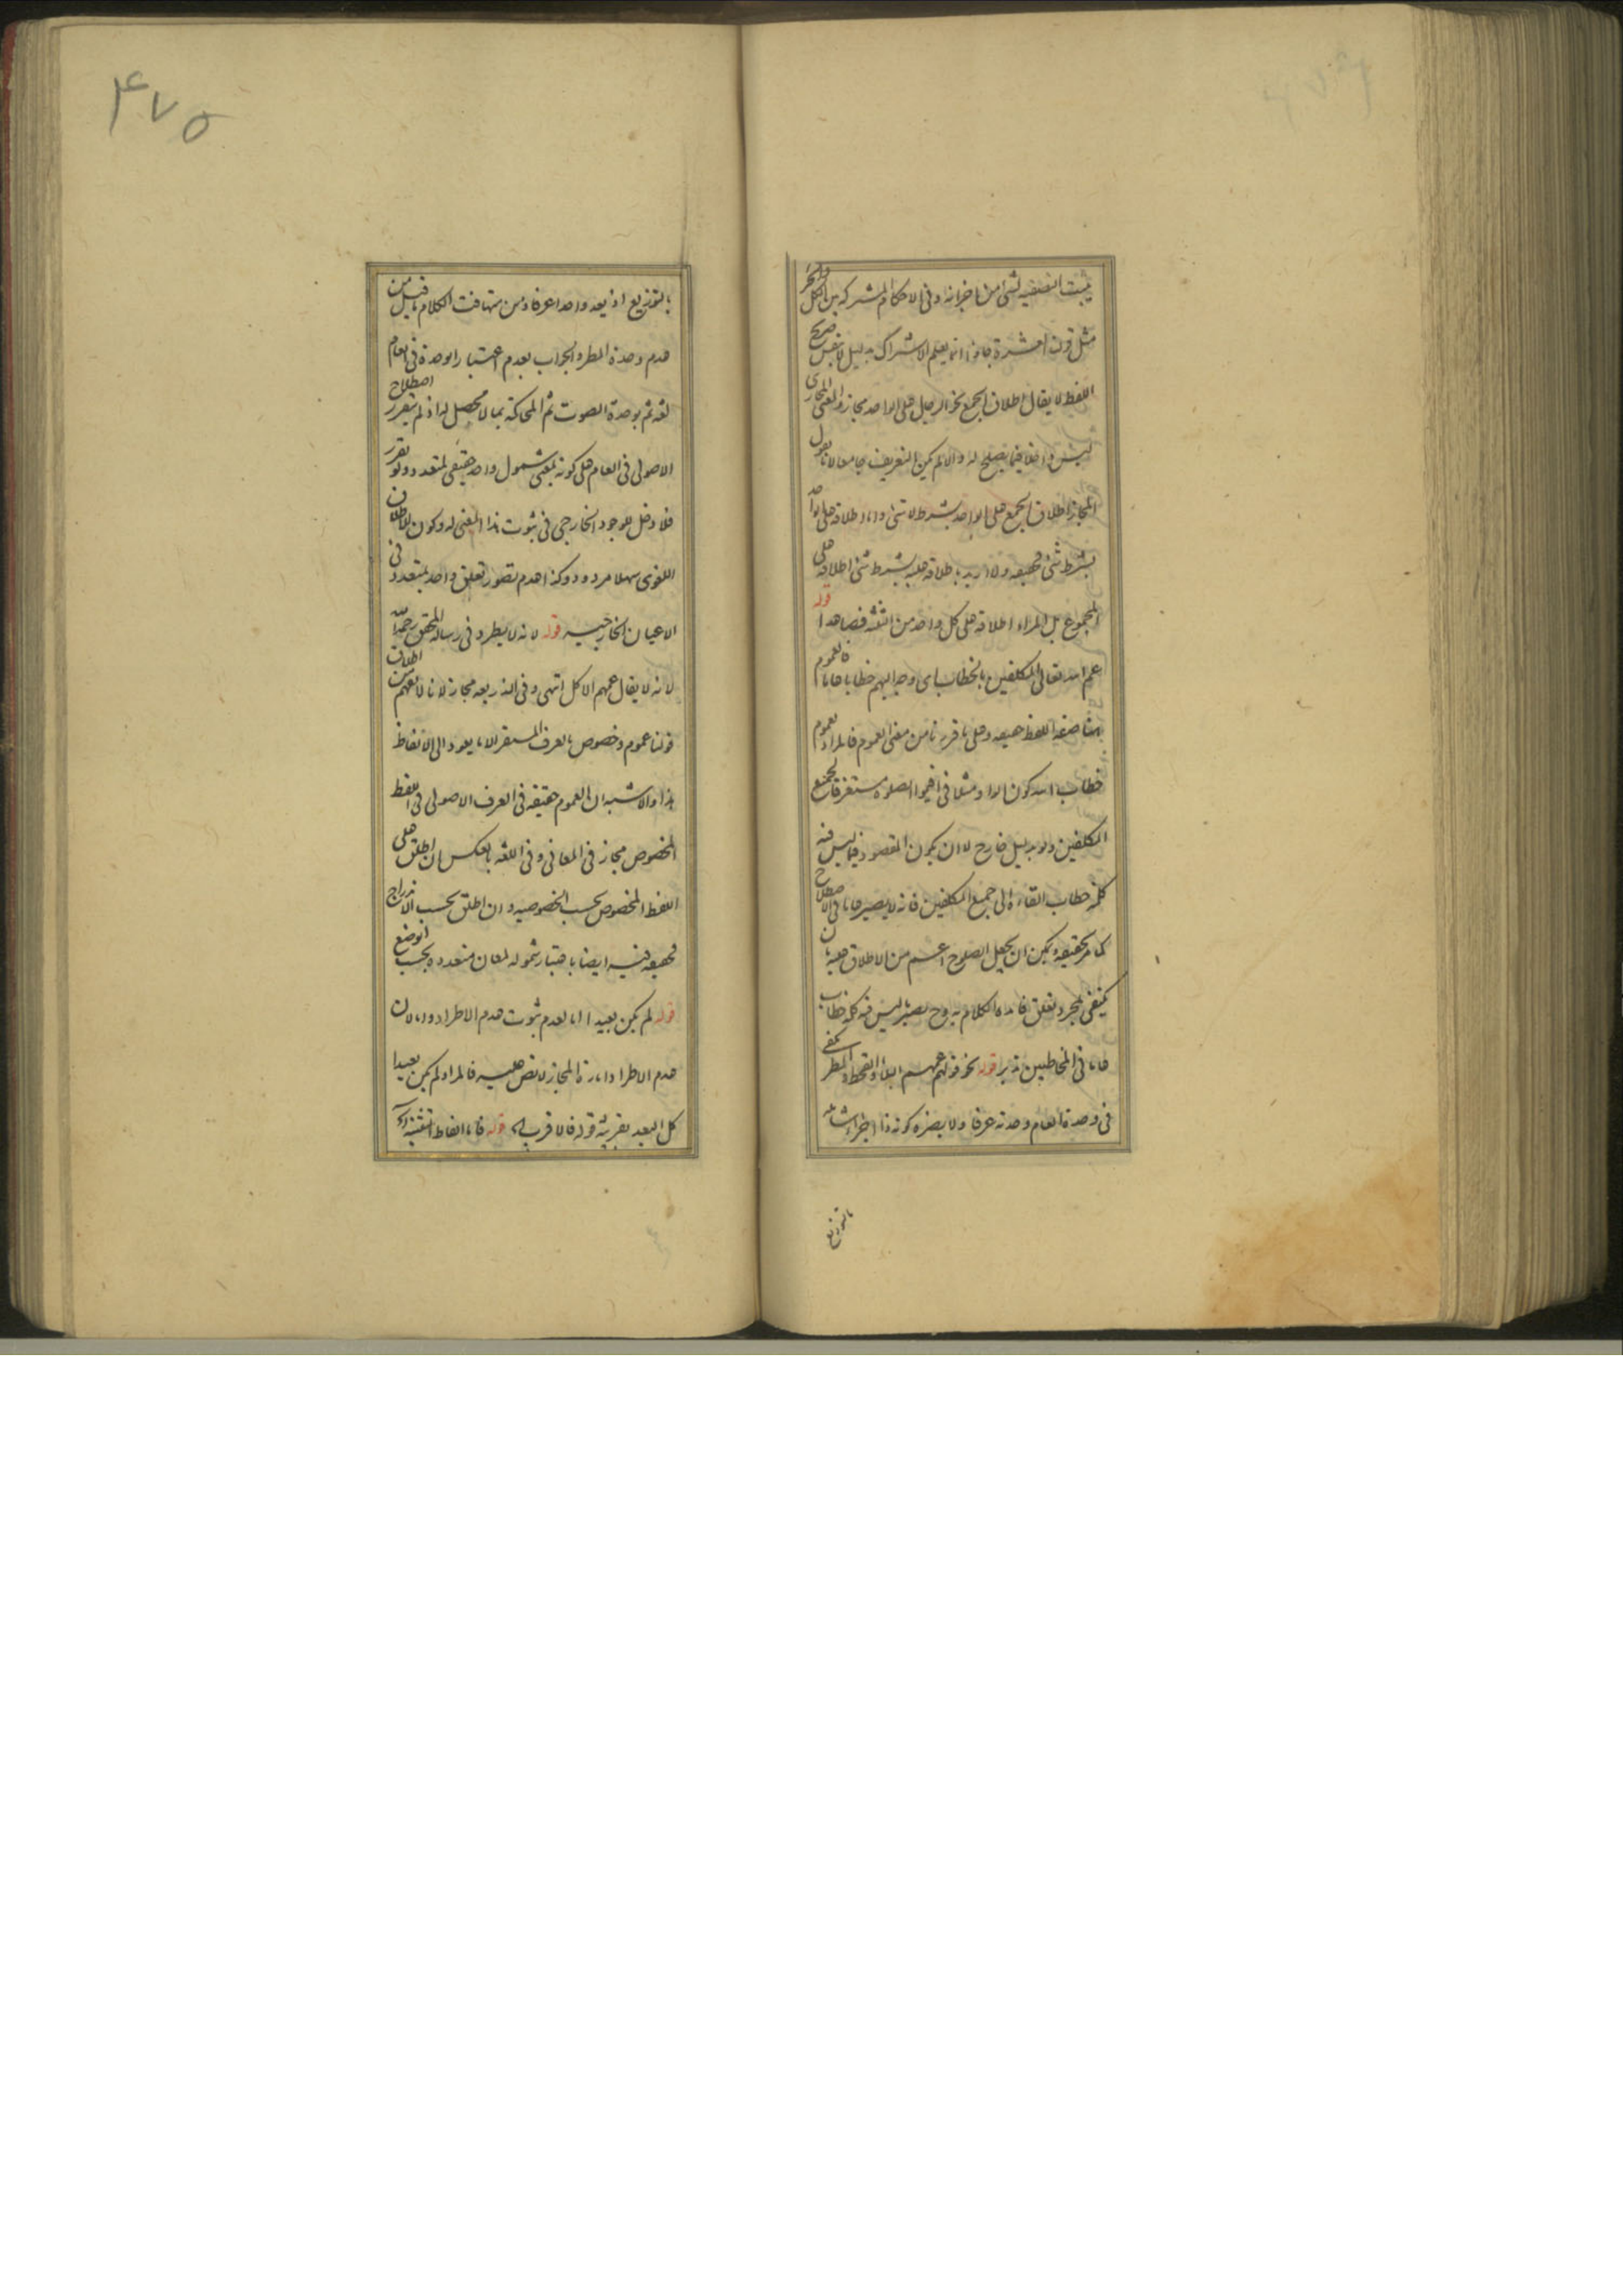 يثبت الصفة لشئ من اجزائه وفى الاحكام المشتركة بين الكل والجزء
مثل قوله العشرة جاؤا انما يعلم الاشتراك بدليل لا بنفس صريح
اللفظ لا يقال اطلاق الجمع نحو الرجال على الواحد مجاز والمعنى المجازى
ليس داخلا فيما يصلح له والا لم يكن التعريف جامعا لانا نقول
المجاز اطلاق الجمع على الواحد بشرط لا شئ واما اطلاقه على الواحد
بشرط شئ فحقيقة ولا اريد باطلاقه عليه بشرط شئ اطلاقه على
المجموع بل المراد اطلاقه على كل واحد من الثلثة فصاعدا قوله
عم الله تعالى المكلفين بالخطاب اى وجه اليهم خطابا عاما فالعموم
هنا صفة اللفظ حقيقة وعلى ما قررنا من معنى العموم فالمراد بعموم
خطاب الله كون الواو مثلا فى اقيموا الصلوة مستغرقا لجميع
المكلفين ولو بدليل خارج لا ان يكون المقصود فيما ليس فيه
كلمة خطاب القاءه الى جميع المكلفين فانه لا يصير عاما فى الاصطلاح
كما مر تحقيقه ويمكن ان يجعل الصلوح اعم من الاطلاق عليه بان
يكتفى بمجرد تعلق فائدة الكلام به وح يصير ما ليس فيه كلمة خطاب
عاما فى المخاطبين تدبر قوله نحو قولهم عمهم البلاء والقحط والمطر يكفى
فى وحدة العام وحدته عرفا ولا يضره كونه ذا اجزاء شاملة
بالتوزيع
۴۷۵
بالتوزيع اذ يعد واحدا عرفا ومن تهافت الكلام ما قيل من
عدم وحدة المطر والجواب بعدم اعتبار الوحدة فى العام
لغة ثم بوحدة الصوت ثم المحاكمة بما لا محصل له اذ لم يتقرر اصطلاح
الاصولى فى العام على كونه بمعنى شمول واحد حقيقى لمتعدد ولو تقرر
فلا دخل للوجود الخارجى فى ثبوت هذا المعنى له وكون الاطلاق
اللغوى سهلا مردود وكذا عدم تصور تعلق واحد بمتعدد فى
الاعيان الخارجية قوله لانه لا يطرد فى رسالة المحقق رحمه الله
لانه لا يقال عمهم الاكل انتهى وفى الذريعة مجاز لانا لا نفهم من اطلاق
قولنا عموم وخصوص بالعرف المستقر الا ما يعود الى الالفاظ
هذا والاشبه ان العموم حقيقة فى العرف الاصولى فى اللفظ
المخصوص مجاز فى المعانى وفى اللغة بالعكس ان اطلق على
اللفظ المخصوص بحسب الخصوصية وان اطلق بحسب الاندراج
فحقيقة فيه ايضا باعتبار شموله لمعان متعددة بحسب الوضع
قوله لم يكن بعيدا اما لعدم ثبوت عدم الاطراد واما لان
عدم الاطراد امارة المجاز لا نص عليه فالمراد لم يكن بعيدا
كل البعد بقرينة قوله فالاقرب اه قوله فاما الفاظ التثنية اه